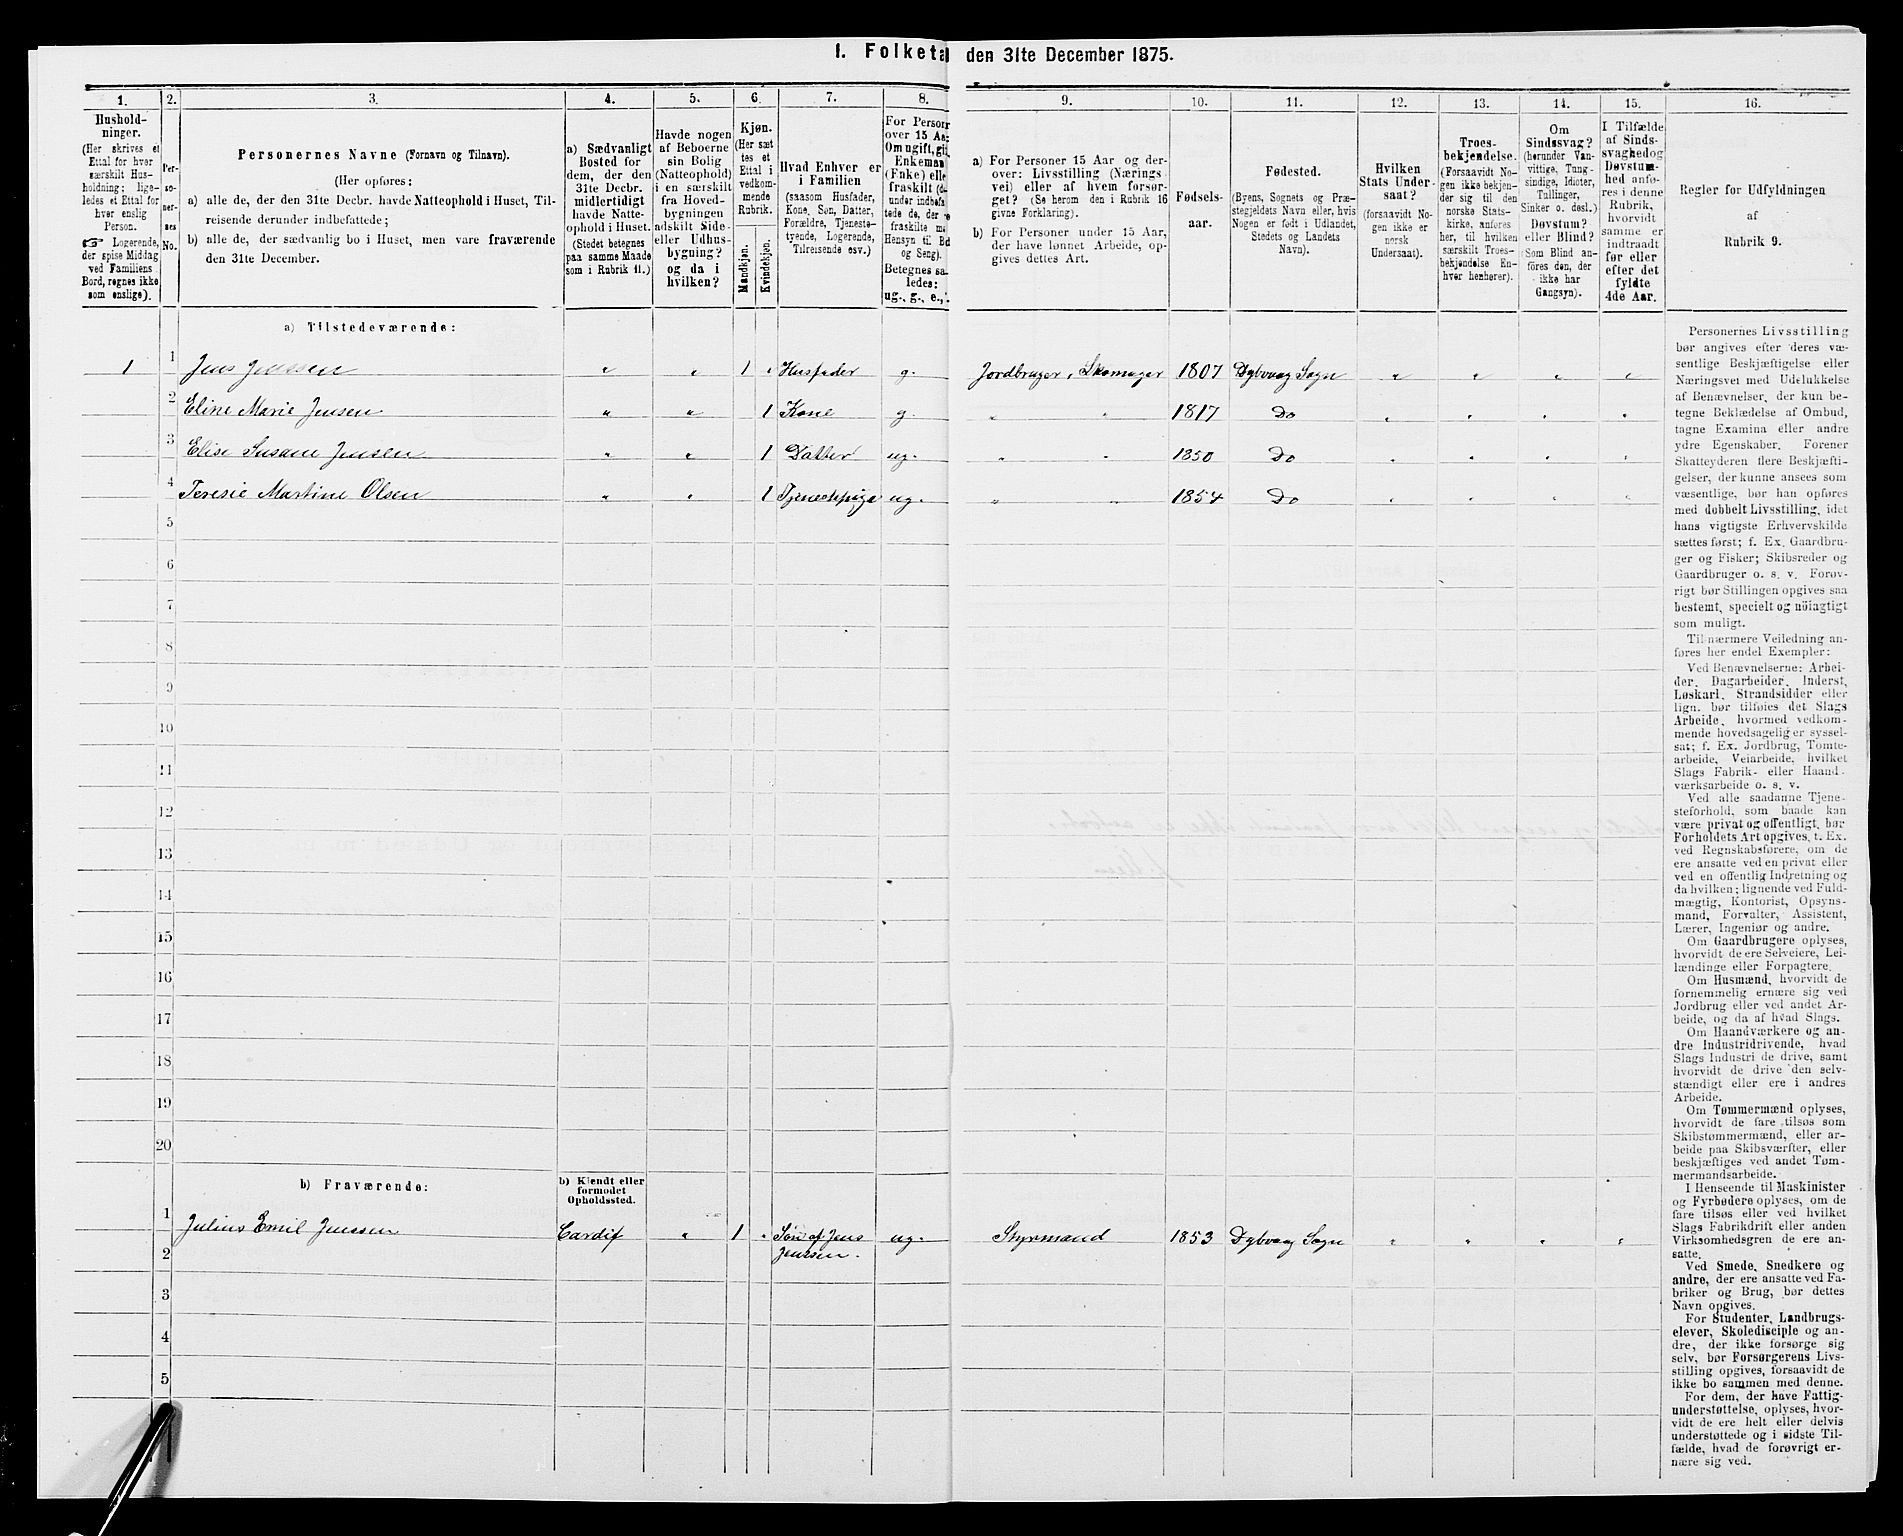 1. Folketa den 31te December 1875.
1. 2. 3. 4. 5. 6. 7. 8. 9. 10. 11. 12. 13. 14. 15. 16.
Hushold-
ninger.
(Her skrives et
Ettal for hver
særskilt Hus-
holdning; lige-
ledes et Ettal for
hver enslig
Person.
☞ Logerende,
der spise Middag
ved Familiens
Bord, regnes ikke
som enslige).
Per-
so-
ner-
nes
No.
Personernes Navne (Fornavn og Tilnavn).
(Her opføres:
a) alle de, der den 31te Decbr. havde Natteophold i Huset, Til-
reisende derunder indbefattede;
b) alle de, der sædvanlig bo i Huset, men vare fraværende
den 31te December.
a) Sædvanligt
Bosted for
dem, der den
31te Decbr.
midlertidigt
havde Natte-
ophold i Huset.
(Stedet betegnes
paa samme Maade
som i Rubrik 11.)
Havde nogen
af Beboerne
sin Bolig
(Natteophold)
i en særskilt
fra Hoved-
bygningen
adskilt Side-
eller Udhus-
bygning?
og da i
hvilken?
Kjøn.
(Her sæt-
tes et
Ettal i
vedkom-
mende
Rubrik.
Mandkjøn.
Kvindekjøn.
Hvad Enhver er
i Familien
(saasom Husfader,
Kone, Søn, Datter,
Forældre, Tjeneste-
tyende, Logerende,
Tilreisende osv.)
For Person
over 15 Aa
Om ugift, gi
Enkeman
(Enke) elle
fraskilt
under indbefat
tede de, der
fraskilte
Hensyn til
og Seng).
Betegnes saa
ledes:
ug., g., e.,
a) For Personer 15 Aar og der-
over: Livsstilling (Nærings
vei) eller af hvem forsør-
get? (Se herom den i Rubrik 16
givne Forklaring).
b) For Personer under 15 Aar,
der have lønnet Arbeide, op-
gives dettes Art.
Fødsels-
aar.
Fødested.
(Byens, Sognets og Præ-
stegjeldets Navn eller, hvis
Nogen er født i Udlandet,
Stedets og Landets
Navn).
Hvilken
Stats Under-
saat?
(forsaavidt No-
gen ikke er
norsk
Undersaat).
Troes-
bekjendelse.
(Forsaavidt No-
gen ikke bekjen-
der sig til den
norske Stats-
kirke, anføres
her, til hvilken
særskilt Troes-
bekjendelse En-
hver henhører).
Om
Sindssvag?
(herunder Van-
vittige, Tung-
sindige, Idioter,
Tullinger,
Sinker o. desl.)
Døvstum?
eller Blind?
(Som Blind an-
føres den, der
ikke har
Gangsyn).
I Tilfælde
af Sinds-
svaghed og
Døvstum-
hed anfø-
res i denne
Rubrik,
hvorvidt
samme er
indtraadt
før eller
efter det
fyldte
4de Aar.
Regler for Udfyldningen
af
Rubrik 9.
a) Tilstedeværende:
1 1 Jens Jenssen " " 1 " Husfader g. Jordbruger, Skomager 1807 Dybvaag Sogn " " " "
2 Eline Marie Jensen " " 1 Kone g. " " 1817 Do " " " "
3 Elise Susane Jensen " " 1 Datter ug. " " 1850 Do " " " "
4 Teresie Martine Olsen " " 1 Tjenestepige ug. " " 1854 Do " " " "
5
6
7
8
9
10
11
12
13
14
15
16
17
18
19
20
b) Fraværende:
b) Kjendt eller
formodet
Opholdssted.
1 Julius Emil Jenssen Cardif " 1 " Søn af Jens ug. Styrmand 1853 Dybvaag Sogn " " " "
2 Jenssen.
3
4
5
Personernes Livsstilling
bør angives efter deres væ-
sentlige Beskjæftigelse eller
Næringsvei med Udelukkelse
af Benævnelser, der kun be-
tegne Beklædelse af Ombud,
tagne Examina eller andre
ydre Egenskaber. Forener
Skatteyderen flere Beskjæfti-
gelser, der kunne ansees som
væsentlige, bør han opføres
med dobbelt Livsstilling, idet
hans vigtigste Erhvervskilde
sættes først; f. Ex. Gaardbru-
ger og Fisker; Skibsreder og
Gaardbruger o. s. v. Forøv-
rigt bør Stillingen opgives saa
bestemt, specielt og nöiagtigt
som muligt.
Til nærmere Veiledning an-
føres her endel Exempler:
Ved Benævnelserne: Arbei-
der, Dagarbeider, Inderst,
Løskarl, Strandsidder eller
lign. bør tilføies det Slags
Arbeide, hvormed vedkom-
mende hovedsagelig er syssel-
sat; f. Ex. Jordbrug, Tomte-
arbeide, Veiarbeide, hvilket
Slags Fabrik- eller Haand-
værksarbeide o. s. v.
Ved alle saadanne Tjene-
steforhold, som baade kan
være privat og offentligt, bør
Forholdets Art opgives, t. Ex.
ved Regnskabsførere, om de
ere ansatte ved en privat eller
ved en offentlig Indretning og
da hvilken; lignende ved Fuld-
mægtig, Kontorist, Opsyns-
mand, Forvalter, Assistent,
Lærer, Ingeniør og andre.
Om Gaardbrugere oplyses,
hvorvidt de ere Selveiere, Lei-
lændinge eller Forpagtere.
Om Husmænd, hvorvidt de
fornemmelig ernære sig ved
Jordbrug eller ved andet Ar-
beide, og da af hvad Slags.
Om Haandværkere og an-
dre Industridrivende, hvad
Slags Industri de drive, samt
hvorvidt de drive den selv-
stændigt eller ere i andres
Arbeide.
Om Tømmermænd oplyses,
hvorvidt de fare tilsøs som
Skibstømmermænd, eller ar-
beide paa Skibsværfter, eller
beskjæftiges ved andet Tøm-
mermandsarbeide.
I Henseende til Maskinister
og Fyrbødere oplyses, om de
fare tilsøs eller ved hvilket
Slags Fabrikdrift eller anden
Virksomhedsgren de ere an-
satte.
Ved Smede, Snedkere og
andre, der ere ansatte ved Fa-
briker og Brug, bør dettes
Navn opgives.
For Studenter, Landbrugs-
elever, Skoledisciple og an-
dre, der ikke forsørge sig
selv, bør Forsørgerens Livs-
stilling opgives, forsaavidt de
ikke bo sammen med denne.
For dem, der have Fattig-
understøttelse, oplyses, hvor-
vidt de ere helt eller delvis
understøttede og i sidste Til-
fælde, hvad de forøvrigt er-
nære sig ved.